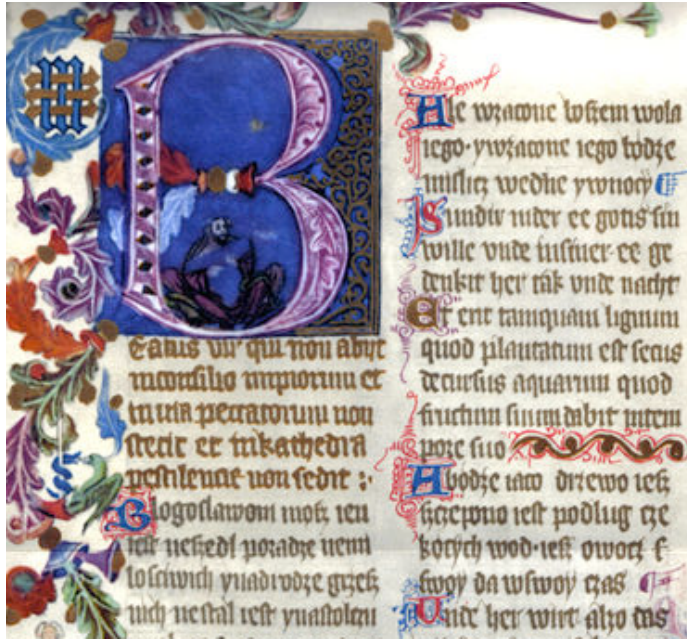 Beatus vir qui non abiit
inconsilio impiorum et
in uia peccatorum non
stetit et inkathedra
pestilencie non sedit :·
Blogoslawoni møsz ien
iest neszedl poradze nemi
losciwich ynadrodze grzesz
nich nestal iest ynastolcu
Ale wzacone boszem wola
iego · ywzacone iego bødze
mislicz wedne ywnocy
Sundir mder ee gotis sin
wille vnde insiner · ee ge
denkit her tak vnde nacht
Et erit tamquam lignum
quod plantatum est secus
decursus aquarum quod
fructum suum dabit intem
pore suo
Abødze iaco drzewo iesz
szczepono iest podlug cze
køcych wod · iesz owocz s
swoy da wswoy czas
Vnde her wirt alzo das